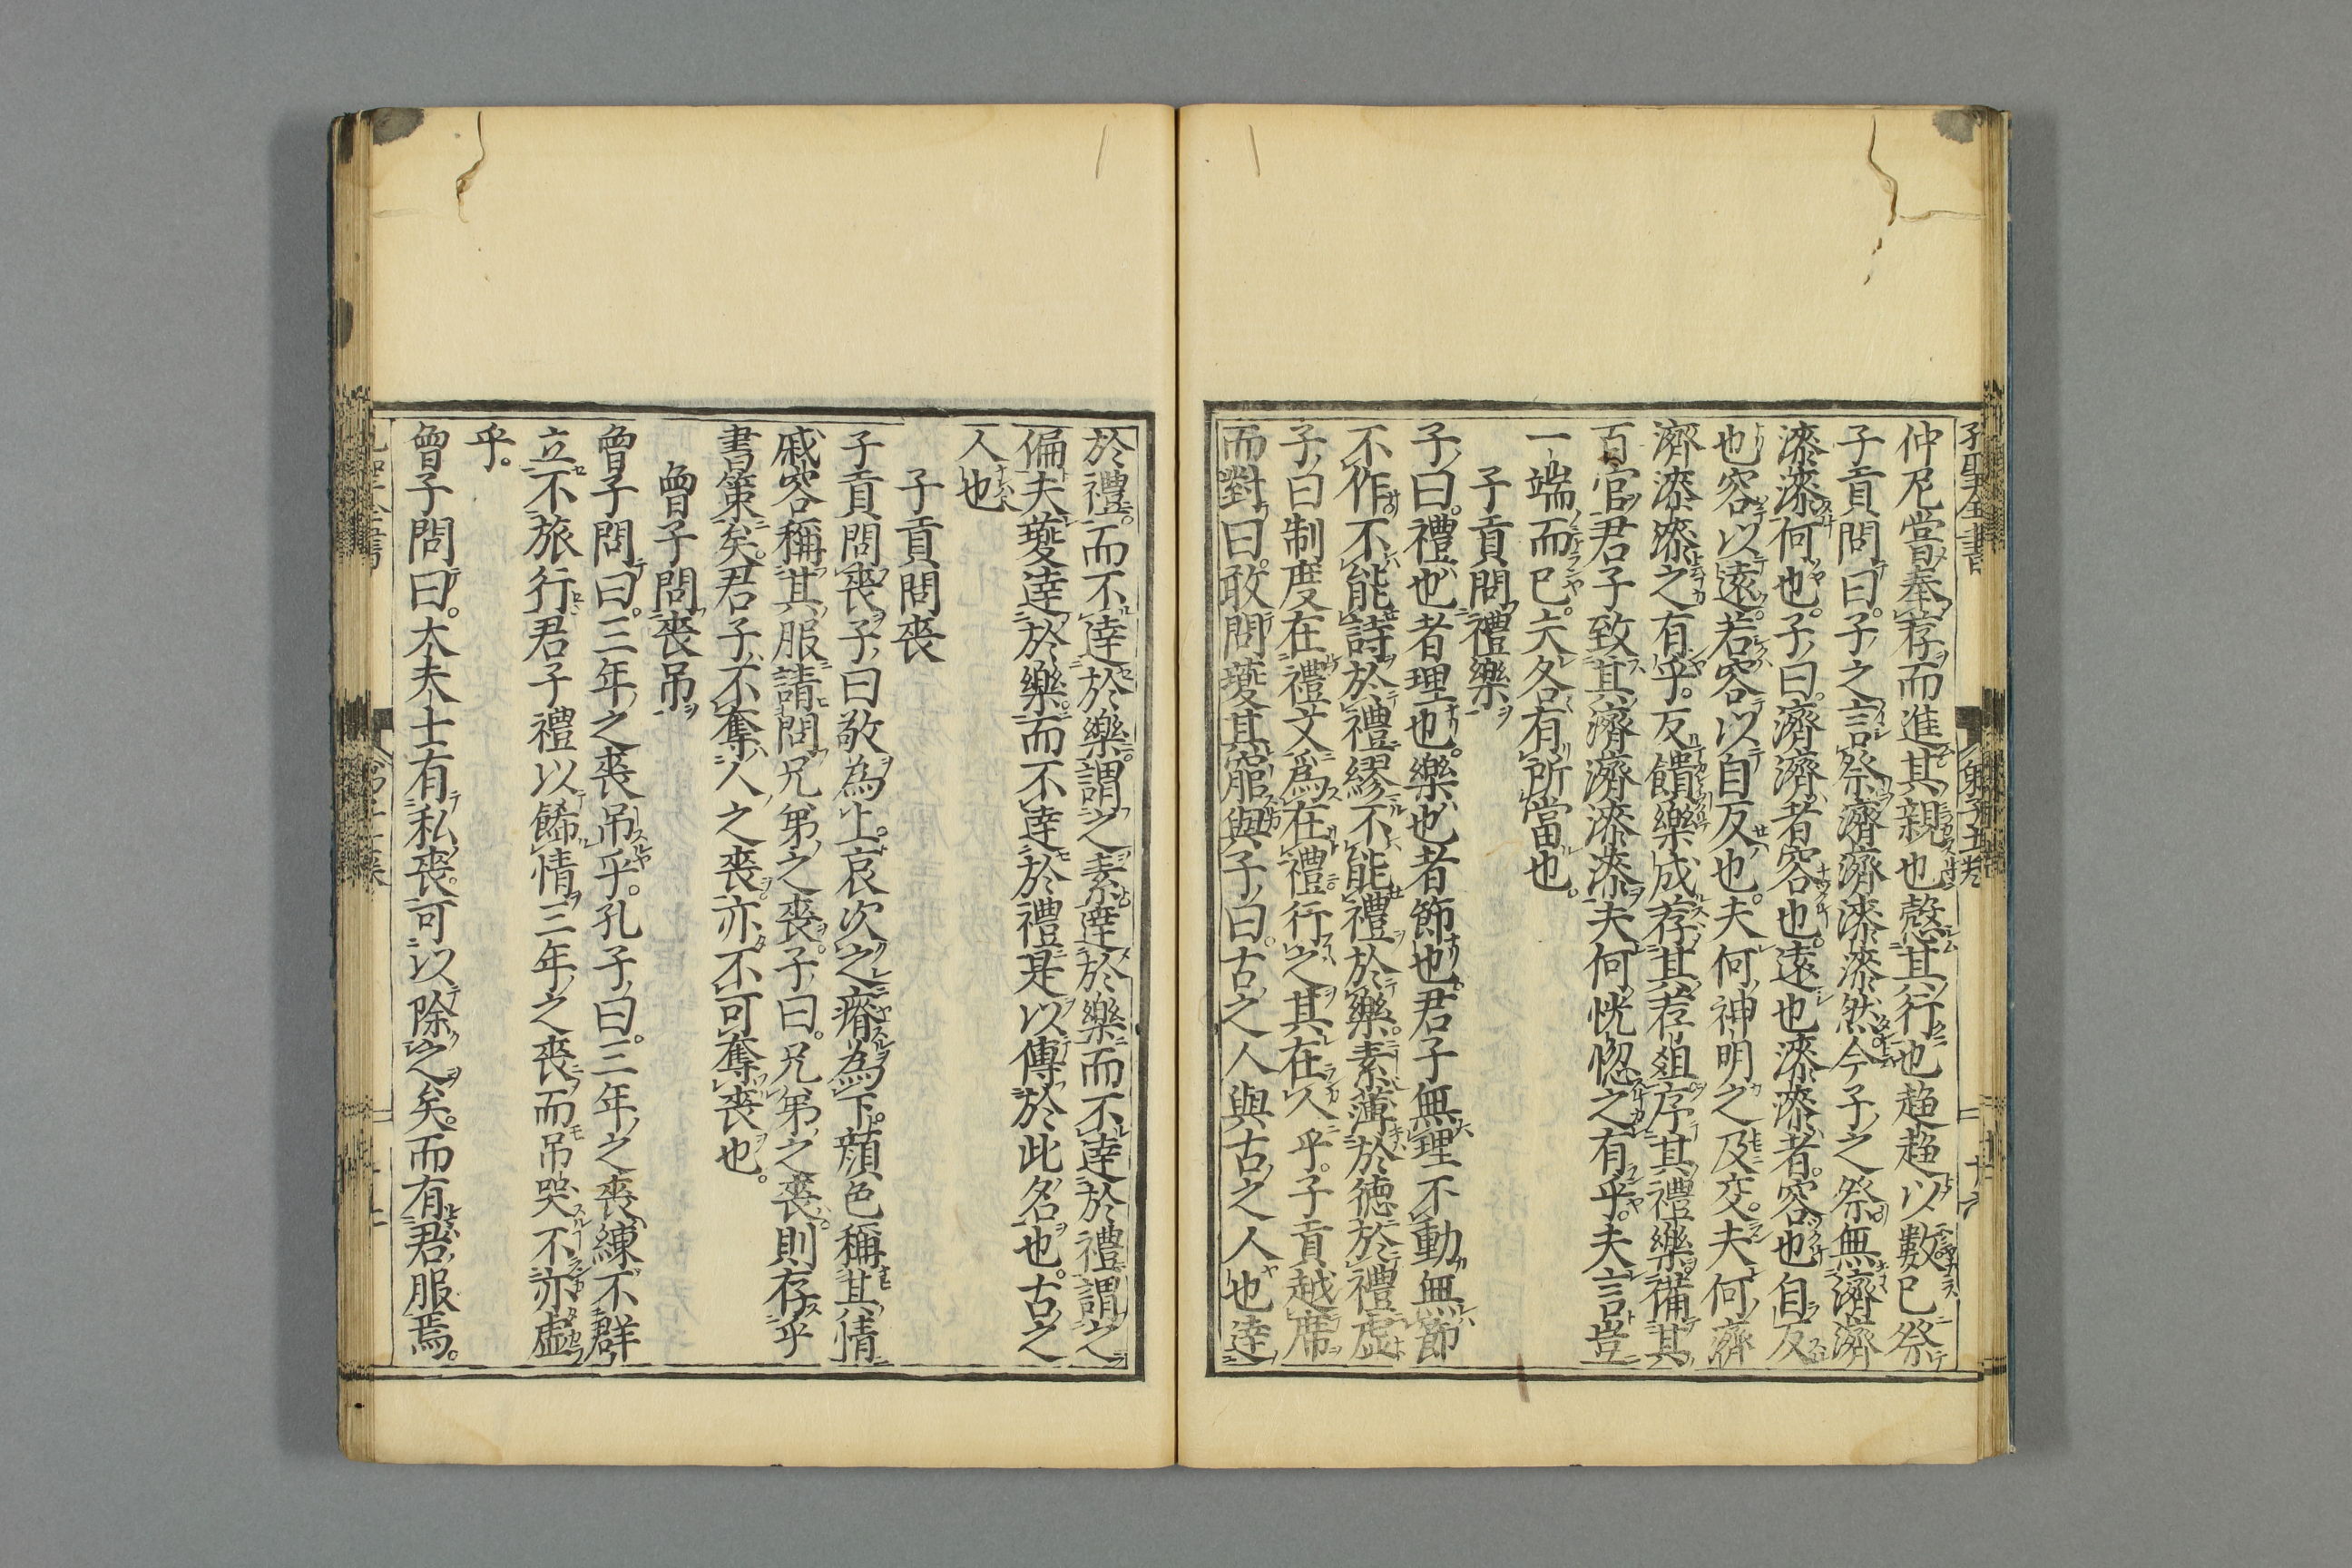 孔聖全書
仲尼嘗奉荐而進其親也慤其行也趨趨以數已祭
子貢問曰子之言祭濟濟漆漆然今子之祭無濟濟
漆漆何也子曰濟濟者容也遠也漆漆者容也自反
也容以遠若容以自反也夫何神明之及交夫何濟
濟漆漆之有乎反饋樂成荐其荐俎序其禮樂備其
百官君子致其濟濟漆漆夫何恍惚之有乎夫言豈
一端而已夫各有所當也
子貢問禮樂
子曰禮也者理也樂也者節也君子無理不動無節
不作不能詩於禮繆不能禮於樂素薄於德於禮虛
子曰制度在禮文為在禮行之其在人乎子貢越席
而對曰敢問夔其窮與子曰古之人與古之人也達
於禮而不達於樂謂之素達於樂而不達於禮謂之
偏夫夔達於樂而不達於禮是以傳於此名也古之
人也
子貢問喪
子貢問喪子曰敬為上哀次之瘠為下顏色稱其情
戚容稱其服請問兄弟之喪子曰兄弟之喪則存乎
書策矣君子不奪人之喪亦不可奪喪也
曾子問喪吊
曾子問曰三年之喪吊乎孔子曰三年之喪練不群
立不旅行君子禮以餙情三年之喪而吊哭不亦虛
乎
曾子問曰大夫士有私喪可以除之矣而有君服焉